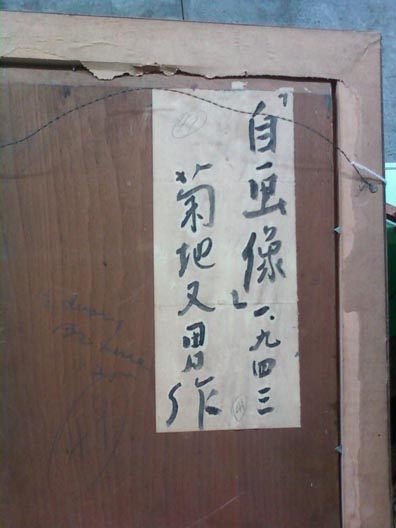 「自画像」一、九四三
菊地又男作